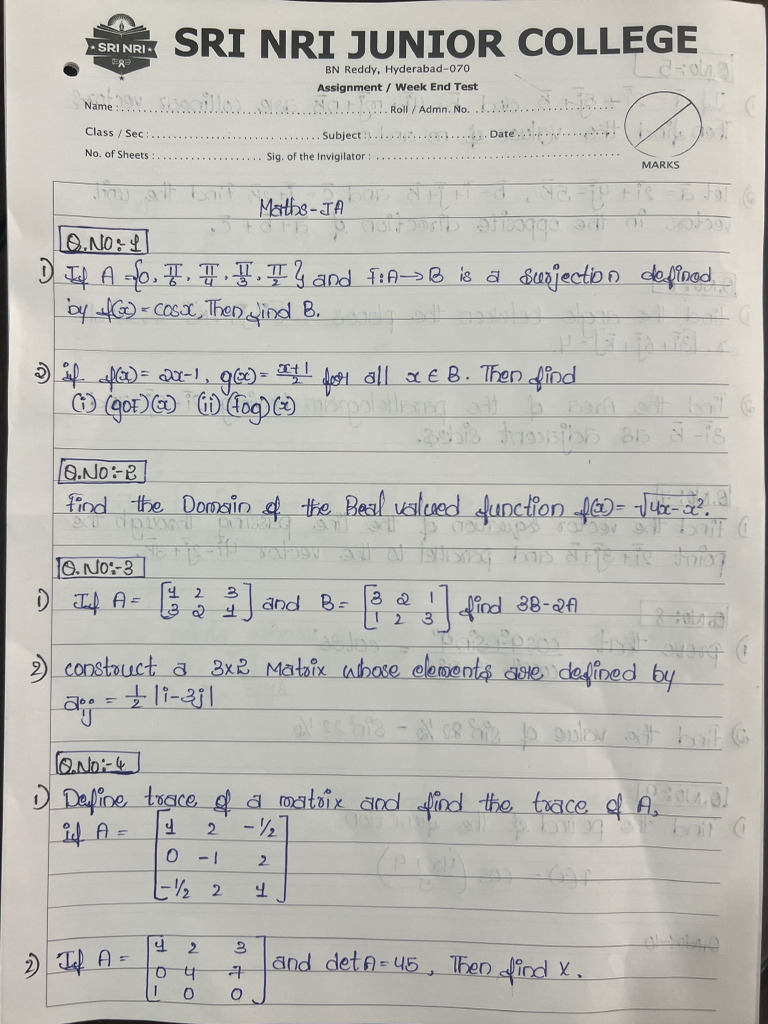 SRI NRI
SRI NRI JUNIOR COLLEGE
BN Reddy, Hyderabad-070
Assignment / Week End Test
Name : ........ Roll / Admn. No. ........
Class / Sec : ........ Subject : ........ Date ........
No. of Sheets : ........ Sig. of the Invigilator : ........
MARKS
Maths-IA
Q.NO:-1
1) If A = {0, π/6, π/4, π/3, π/2} and f:A→B is a surjection defined
by f(x) = cosx, Then find B.
2) if f(x) = 2x-1, g(x) = x+1/2 for all x ∈ B. Then find
(i) (gof)(x) (ii) (fog)(x)
Q.NO:-2
Find the Domain of the Real valued function f(x) = √4x-x².
Q.NO:-3
1) If A = [1 2 3 / 3 2 1] and B = [3 2 1 / 1 2 3] find 3B-2A
2) construct a 3x2 Matrix whose elements are defined by
aij = 1/2 |i-3j|
Q.NO:-4
1) Define trace of a matrix and find the trace of A,
if A = [1 2 -1/2
0 -1 2
-1/2 2 1]
2) If A = [1 2 3 / 0 4 7 / 1 0 0] and detA = 45, Then find x.